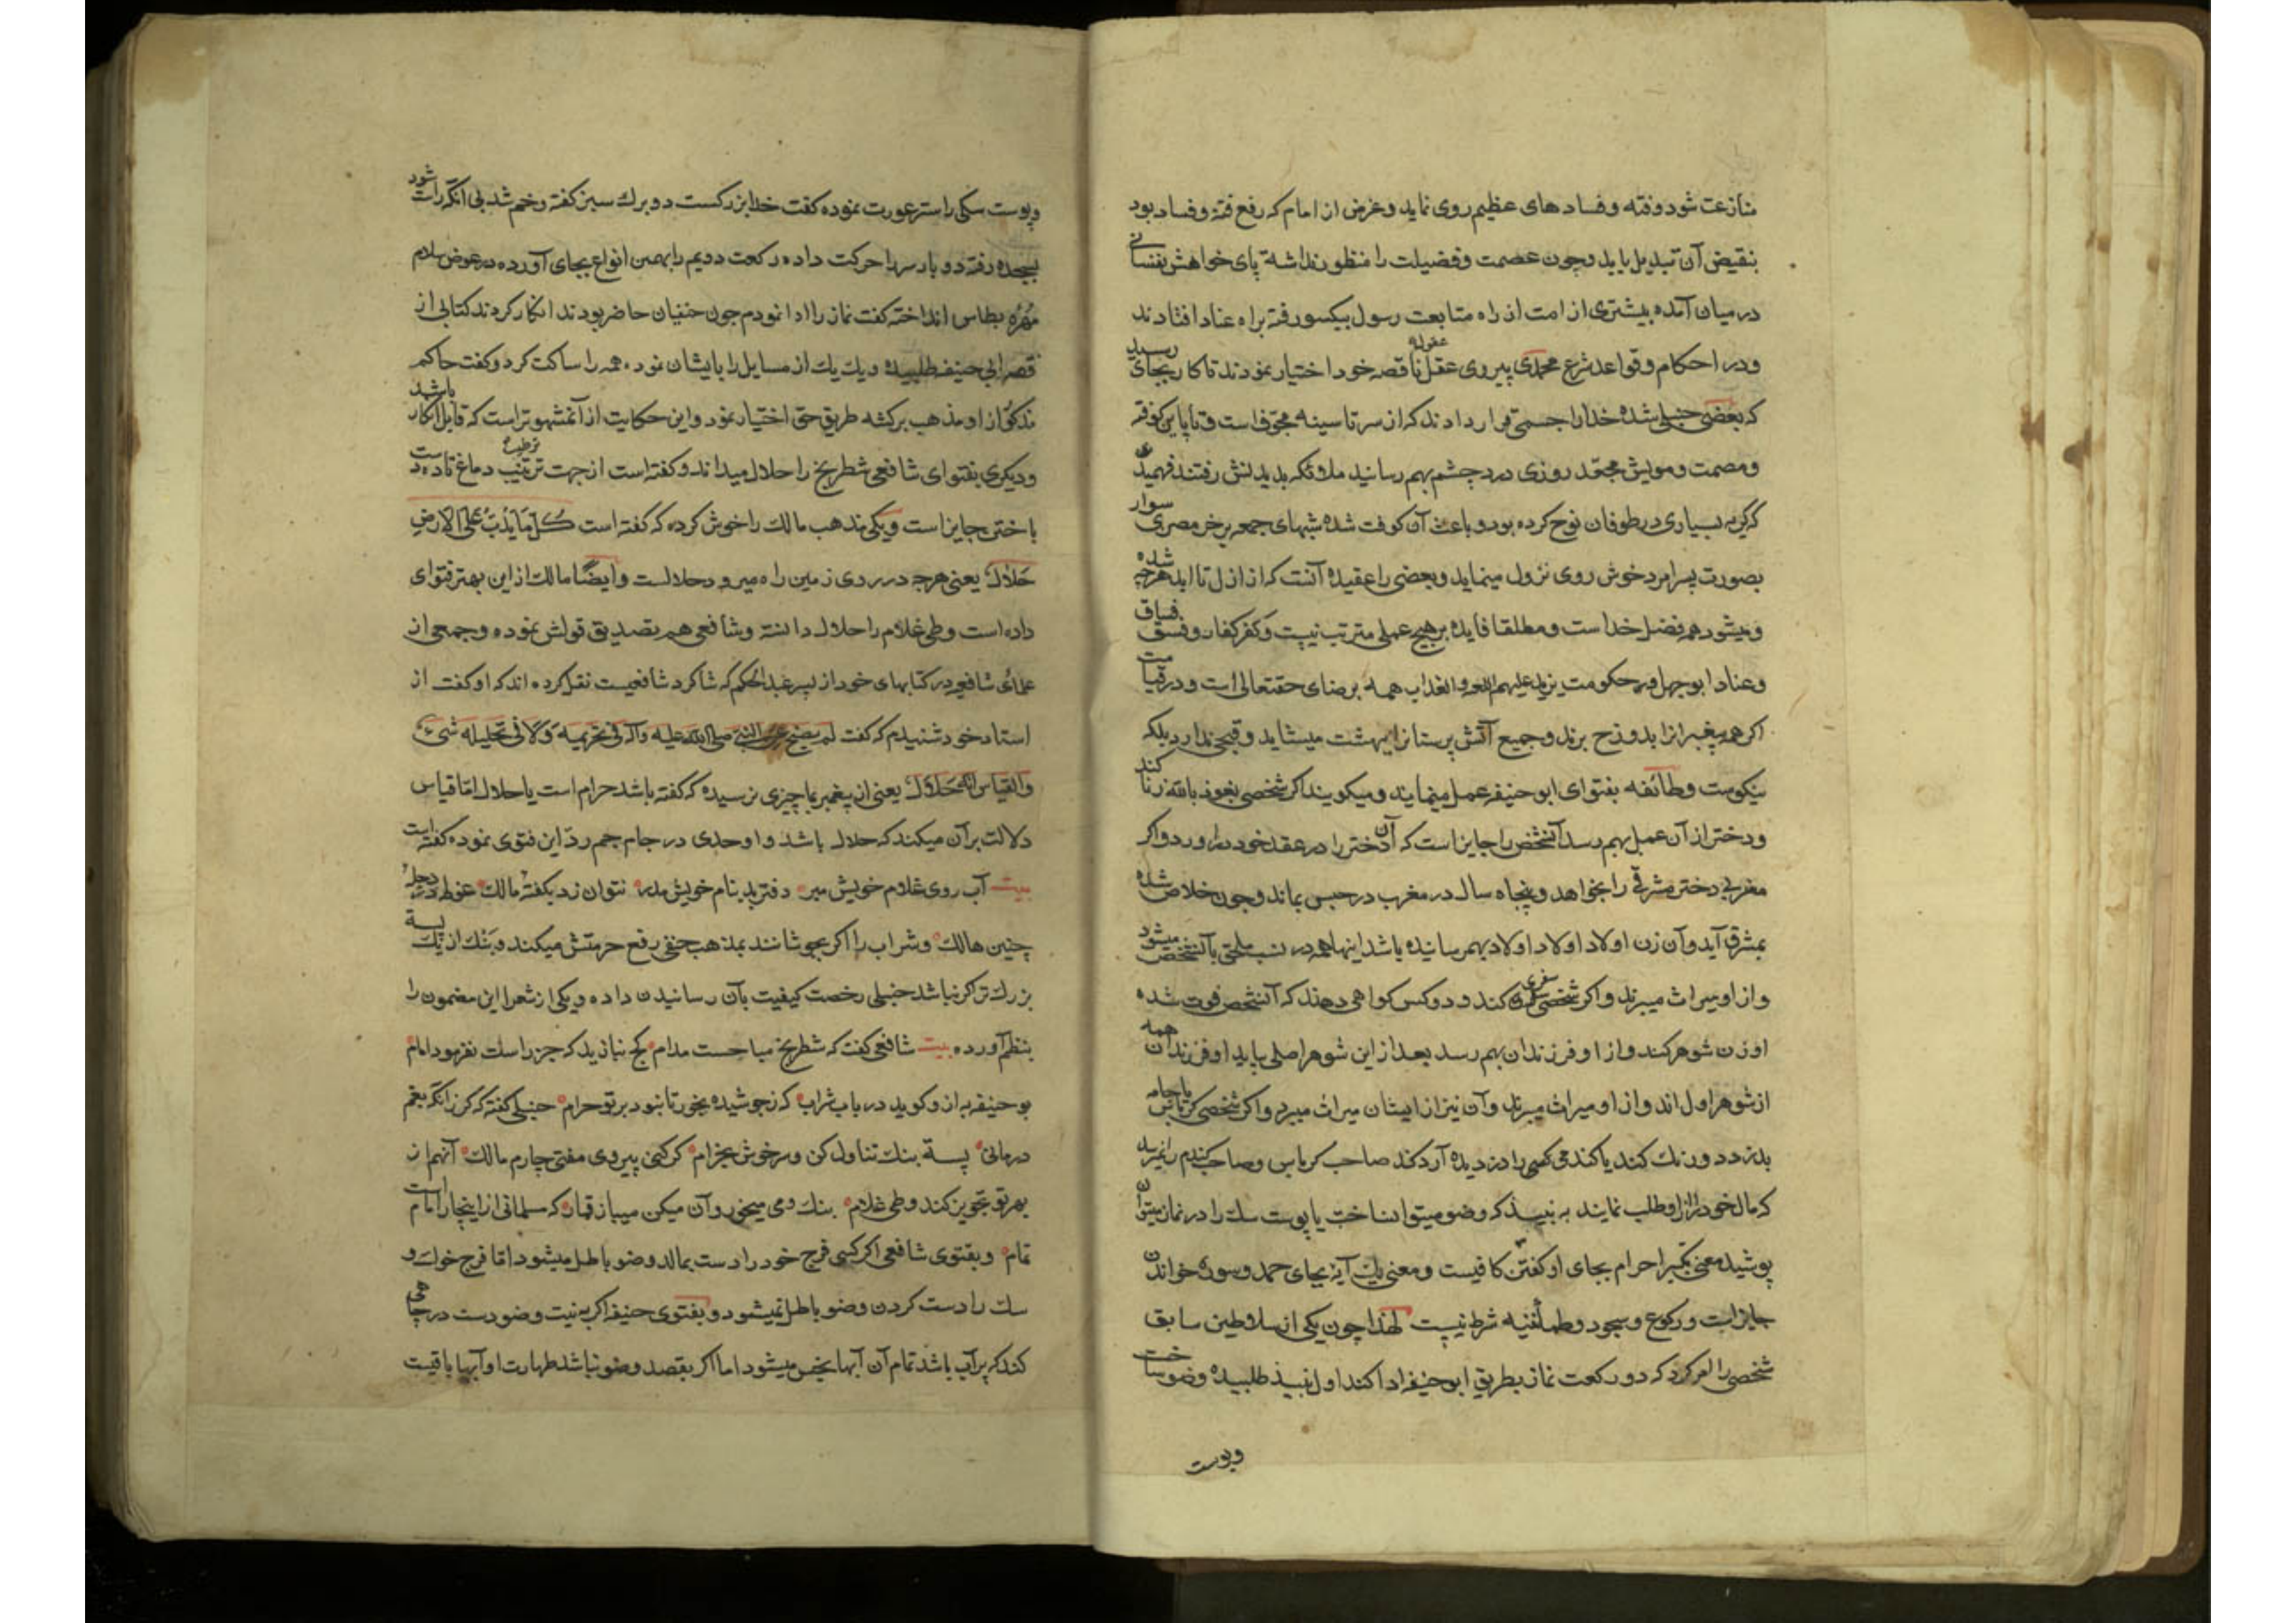 منازعت شود و فتنه و فسادهای عظیم روی نماید و غرض از امام که رفع فتنه و فساد بود
بنقیض آن تبدیل یابد و چون عصمت و فضیلت را منظور نداشته پای خواهش نفسانی
در میان آمده بیشتری از امت از راه متابعت رسول بیکسو رفته براه عناد افتادند
و در احکام و قواعد شرع محمدی پیروی عقل ناقصه خود اختیار نمودند تا کار بجای رسید
که بعضی حنبلی شده خدا را جسمی قرار دادند که از سر تا سینه مجوف است و تا پاین کوفته
و مصمت و مویش مجعد روزی درد چشم بهم رسانید ملائکه بدیدنش رفتند فهمید
که کریه بسیاری در طوفان نوح کرده بود و باعث آن کوفت شده شبهای جمعه بر خر مصری سوار
بصورت پسر امرد خوش روی نزول مینماید و بعضی را عقیده آنست که از ازل تا ابد هرچه شده
و میشود همه فضل خداست و مطلقا فایده بر هیچ عملی مترتب نیست و کفر کفار و فسق فساق
و عناد ابوجهل و حکومت یزید علیهم اللعنه و العذاب همه برضای حقتعالی است و در قیامت
اکر همه پیغمبرانرا بدوزخ برند و جمیع آتش پرستانرا ببهشت میشاید و قبحی ندارد بلکه
نیکوست و طائفه بفتوای ابوحنیفه عمل مینمایند و میکویند اکر شخصی نعوذ بالله زنا کند
و دختر از آن عمل بهم رسد آنشخص را جایز است که آن دختر را در عقد خود درآورد و اکر
مغربی دختر مشرقی را بخواهد و پنجاه سال در مغرب در حبس بماند و چون خلاص شده
بمشرق آید و آن زن اولاد اولاد اولاد بهمرسانیده باشد اینها همه در نسب ملحق بآنشخص میشود
و از او میراث میبرند و اکر شخصی سفری کند و دو کس کواهی دهند که آنشخص فوت شده
او زن شوهر کند و از او فرزندان بهم رسد بعد از این شوهر اصلی بیاید او فرزندان همه
از شوهر اول اند و از او میراث میبرند و آن نیز از ایشان میراث میبرد و اکر شخصی کرباس یا جامه
بدزدد و رنک کند یا کندم کسی را دزدیده آرد کند صاحب کرباس و صاحب کندم را نمیرسد
که مال خود را از او طلب نمایند به نبیذ که وضو میتوان ساخت یا پوست سک را در نماز میتوان
پوشید معنی تکبیر احرام بجای او کفتن کافیست و معنی یک آیه بجای حمد و سوره خواندن
جایز است و رکوع و سجود و طمأنینه شرط نیست لهذا چون یکی از سلاطین سابق
شخصی را امر کرد که دو رکعت نماز بطریق ابوحنیفه ادا کند اول نبیذ طلبیده وضو ساخت
وپوست
وپوست سکی را ستر عورت نموده کفت خدا بزرکست دو برک سبز کفته و خم شد بی آنکه راست شود
بسجده رفته دو بار سر را حرکت داده رکعت دویم را بهمین انواع بجای آورده در عوض سلام
مهره بطاس انداخته کفت نماز را ادا نمودم چون حنفیان حاضر بودند انکار کردند کتابی از
فقه ابی حنیفه طلبیده و یک یک از مسایل را بایشان نموده همه را ساکت کرد و کفت حاکم
مذکور از او مذهب برکشته طریق حق اختیار نمود و این حکایت از آن مشهورتر است که قابل انکار باشد
و دیکری بفتوای شافعی شطرنج را حلال میداند و کفته است از جهت ترطیب دماغ تا ده دست
باختن جایز است و یکی مذهب مالک را خوش کرده که کفته است کل ما یدب علی الارض
حلال یعنی هرچه در روی زمین راه میرود حلالست و ایضا مالک از این بهتر فتوای
داده است وطی غلام را حلال دانسته و شافعی هم تصدیق قولش نموده و جمعی از
علمای شافعی در کتابهای خود از پسر عبد الحکم که شاکرد شافعیست نقل کرده اند که او کفت از
استاد خود شنیدم که کفت لم یصح عن النبی صلی الله علیه وآله فی تحریمه ولا فی تحلیله شیء
والقیاس انه حلال یعنی از پیغمبر بما چیزی نرسیده که کفته باشد حرام است یا حلال اما قیاس
دلالت بر آن میکند که حلال باشد و اوحدی در جام جم رد این فتوی نموده کفته است
بیت آب روی غلام خویش مبر دفتر بد بنام خویش مدر نتوان زد بکفته مالک غوطه در دجله
چنین هالک و شراب را اکر بجوشانند بمذهب حنفی رفع حرمتش میکنند و بنک از یک پسته
بزرک تر اکر نباشد حنبلی رخصت کیفیت بآن رسانیدن داده و یکی از شعرا این مضمون را
بنظم آورده بیت شافعی کفت که شطرنج مباحست مدام کج نبازید که جز راست نفرمود امام
بوحنیفه به از و کوید در باب شراب که ز جوشیده بخور تا نبود بر تو حرام حنبلی کفته که کر زانکه بغم
درمانی پسته بنک تناول کن و سرخوش بخرام کر کنی پیروی مفتی چارم مالک آنهم از
بهر تو تجویز کند وطی غلام بنک و می میخور و آن میکن میباز قمار که مسلمانی از اینچار امام است
تمام و بفتوی شافعی اکر کسی فرج خود را دست بمالد وضو باطل میشود اما فرج خوک و
سک را دست کردن وضو باطل نمیشود و بفتوی حنیفه اکر به نیت وضو دست در چاهی
کند که پر آب باشد تمام آن آبها نجس میشود اما اکر بقصد وضو نباشد طهارت او آبها باقیست